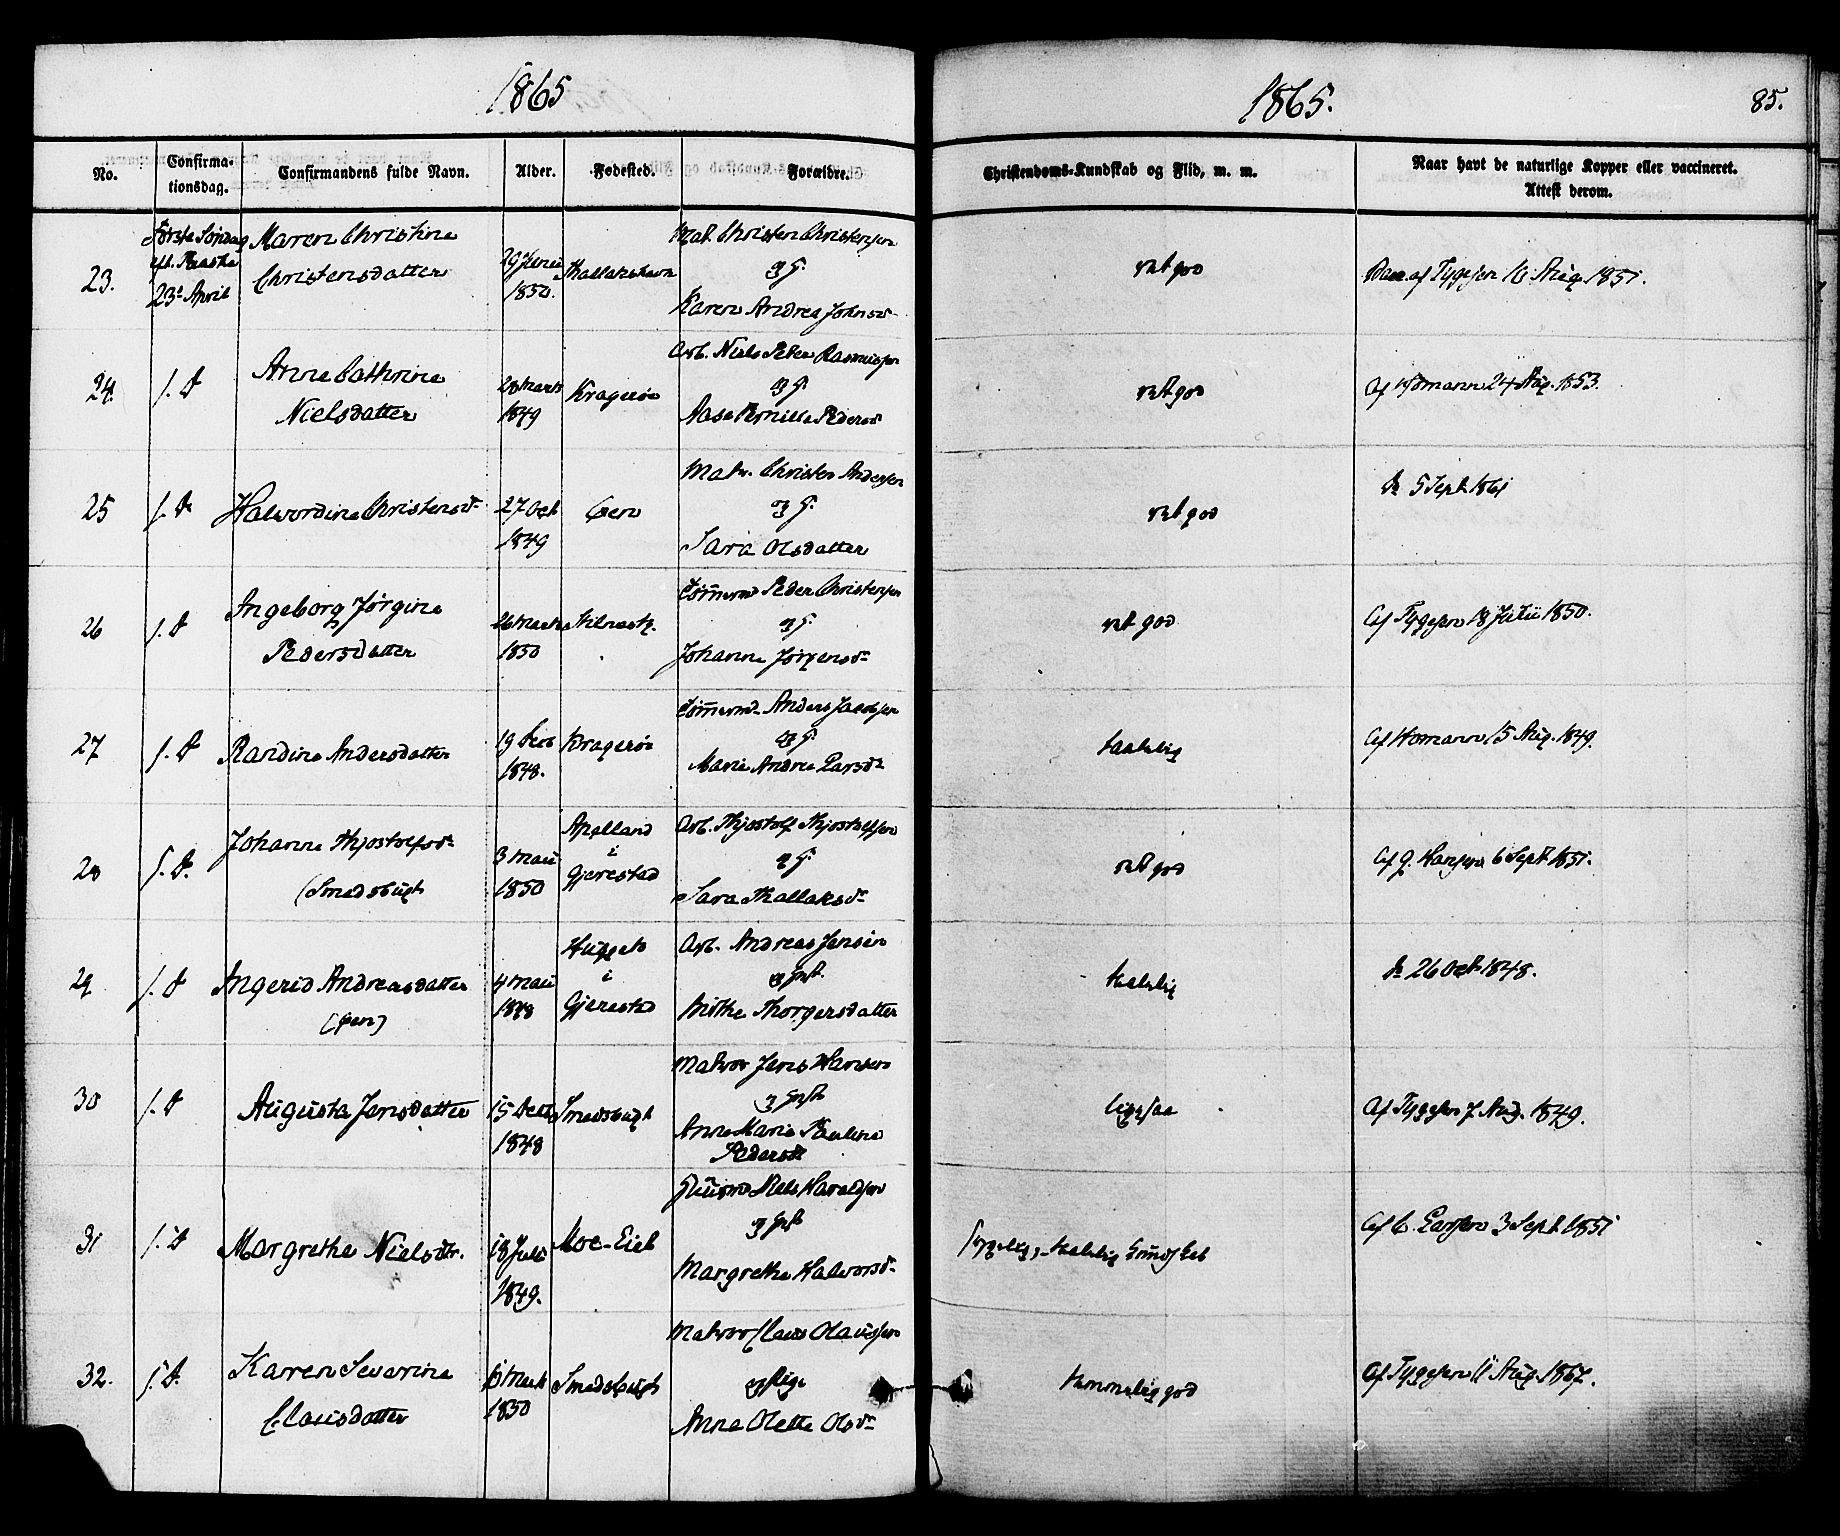 1865
1865.
85.
No.
Confirma-
tionsdag.
Confirmandens fulde Navn.
Alder.
Fødested.
Forældre.
Christendoms-Kundskab og Flid, m. m.
Naar havt de naturlige Kopper eller vaccineret.
Attest derom.
23.
Første Søndag
eft. Paaske
23d April
Maren Christine
Christensdatter
29 Juni
1850.
Mat. Christen Christensen
og H.
Karen Andrea Johnsd.
ret god
Vacc. af Tygesen 16 Aug. 1851.
24.
s. D
Anne Cathrine
Nielsdatter
28 Marts
1849
Kragerøe
Arb. Niels Peter Rasmussen
og H.
Aase Pernille Pedersd
ret god
af Homann 24 Aug. 1853.
25
s. D
Halvordine Christensd
27 Oct
1849
Øen
Matr. Christen Andersen
og H.
Sara Olsdatter
ret god
5 Sept 1861
26
s. D
Ingeborg Jørgine
Pedersdatter
26 Marts
1850
Tømmermd Peder Christensen
og H.
Johanne Jørgensd
ret god
af Tygesen 18 Julii 1850.
27
s. D
Randine Andersdatter
19
1848.
Kragerøe
Tømmermd Anders Jacobsen
og H.
Marie Andrea Larsd
taalelig
af Homann 15 Aug. 1849.
28
s. D.
Johanne Thjostolfsd
(Smedsbugt
3 Maii
1850
Apelland
i
Gjerestad
Arb. Thjostolf Thjostolfsen
og H.
Sara Thallaksd
ret god
af G. Hansen 6 Sept 1851.
29
s. D
Ingerid Andreasdatter
(Øen)
4 Maii
1848
i
Gjerestad
Arb. Andreas Jensen
og Hst.
Thorgersdatter
taalelig
26 Oct 1848.
30
s. D
Augusta Jensdatter
15 Dec
1848
Smedsbugt
Matros Jens Hansen
og Hst
Anne Marie Pauline
Pedersd
ligesaa
af Tygesen 7 Aug. 1849.
31
s. D
Margrethe Nielsdtr.
18 Juli
1849.
Moe-Eie
Huusmd Niels Haraldsen
og Hst
Margrethe Halvorsd
taalelig Kundskab
af C. Larsen 3 Sept 1851
32.
s. D.
Karen Severine
Clausdatter
Marts
1850
Smedsbugt
Matros Claus Olaussen
og
Anne Olette Olsd
temmelig god
af Tygesen 11 Aug. 1867.